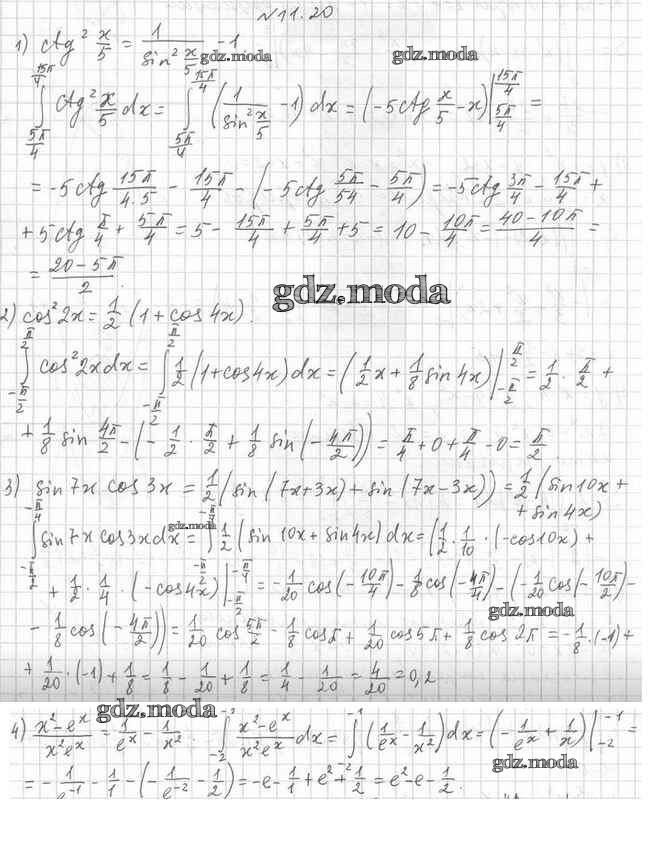 №11.20
1) ctg² x/5 = 1/(sin² x/5) - 1
gdz.moda
gdz.moda
∫_{5π/4}^{15π/4} ctg² x/5 dx = ∫_{5π/4}^{15π/4} (1/(sin² x/5) - 1) dx = (-5ctg x/5 - x)|_{5π/4}^{15π/4} =
= -5ctg 15π/(4·5) - 15π/4 - (-5ctg 5π/54 - 5π/4) = -5ctg 3π/4 - 15π/4 +
+ 5ctg π/4 + 5π/4 = 5 - 15π/4 + 5π/4 + 5 = 10 - 10π/4 = (40-10π)/4 =
= (20-5π)/2.
gdz.moda
2) cos²2x = 1/2 (1+cos4x).
∫_{-π/2}^{π/2} cos²2xdx = ∫_{-π/2}^{π/2} 1/2 (1+cos4x)dx = (1/2 x + 1/8 sin4x)|_{-π/2}^{π/2} = 1/2 · π/2 +
+ 1/8 sin 4π/2 - (-1/2 · π/2 + 1/8 sin(-4π/2)) = π/4 + 0 + π/4 - 0 = π/2.
3) sin7x cos3x = 1/2 (sin(7x+3x) + sin(7x-3x)) = 1/2 (sin10x +
+ sin4x)
gdz.moda
∫_{-π/2}^{-π/4} sin7x cos3xdx = ∫_{-π/2}^{-π/4} 1/2 (sin10x + sin4x)dx = (1/2 · 1/10 · (-cos10x) +
+ 1/2 · 1/4 · (-cos4x)|_{-π/2}^{-π/4} = -1/20 cos(-10π/4) - 1/8 cos(-4π/4) - (-1/20 cos(-10π/2) -
gdz.moda
- 1/8 cos(-4π/2)) = 1/20 cos 5π/2 - 1/8 cosπ + 1/20 cos5π + 1/8 cos2π = -1/8 · (-1) +
+ 1/20 · (-1) + 1/8 = 1/8 - 1/20 + 1/8 = 1/4 - 1/20 = 4/20 = 0,2
gdz.moda
4) (x²-eˣ)/(x²eˣ) = 1/eˣ - 1/x². ∫_{-2}^{-1} (x²-eˣ)/(x²eˣ) dx = ∫_{-2}^{-1} (1/eˣ - 1/x²)dx = (-1/eˣ + 1/x)|_{-2}^{-1} =
gdz.moda
= -1/e⁻¹ - 1/1 - (-1/e⁻² - 1/2) = -e - 1/1 + e² + 1/2 = e² - e - 1/2.